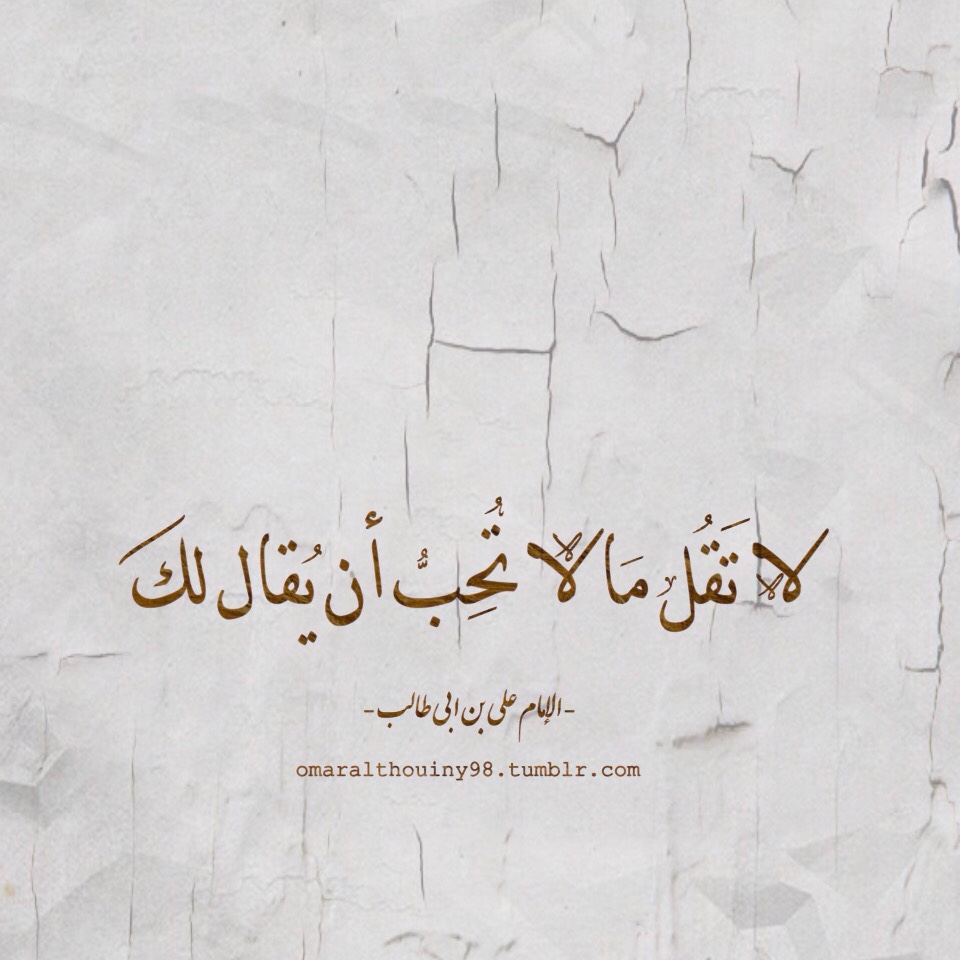 لا تَقُل مَا لا تُحِبُّ أن يُقال لك
-الإمام على بن ابى طالب-
omaralthouiny98.tumblr.com